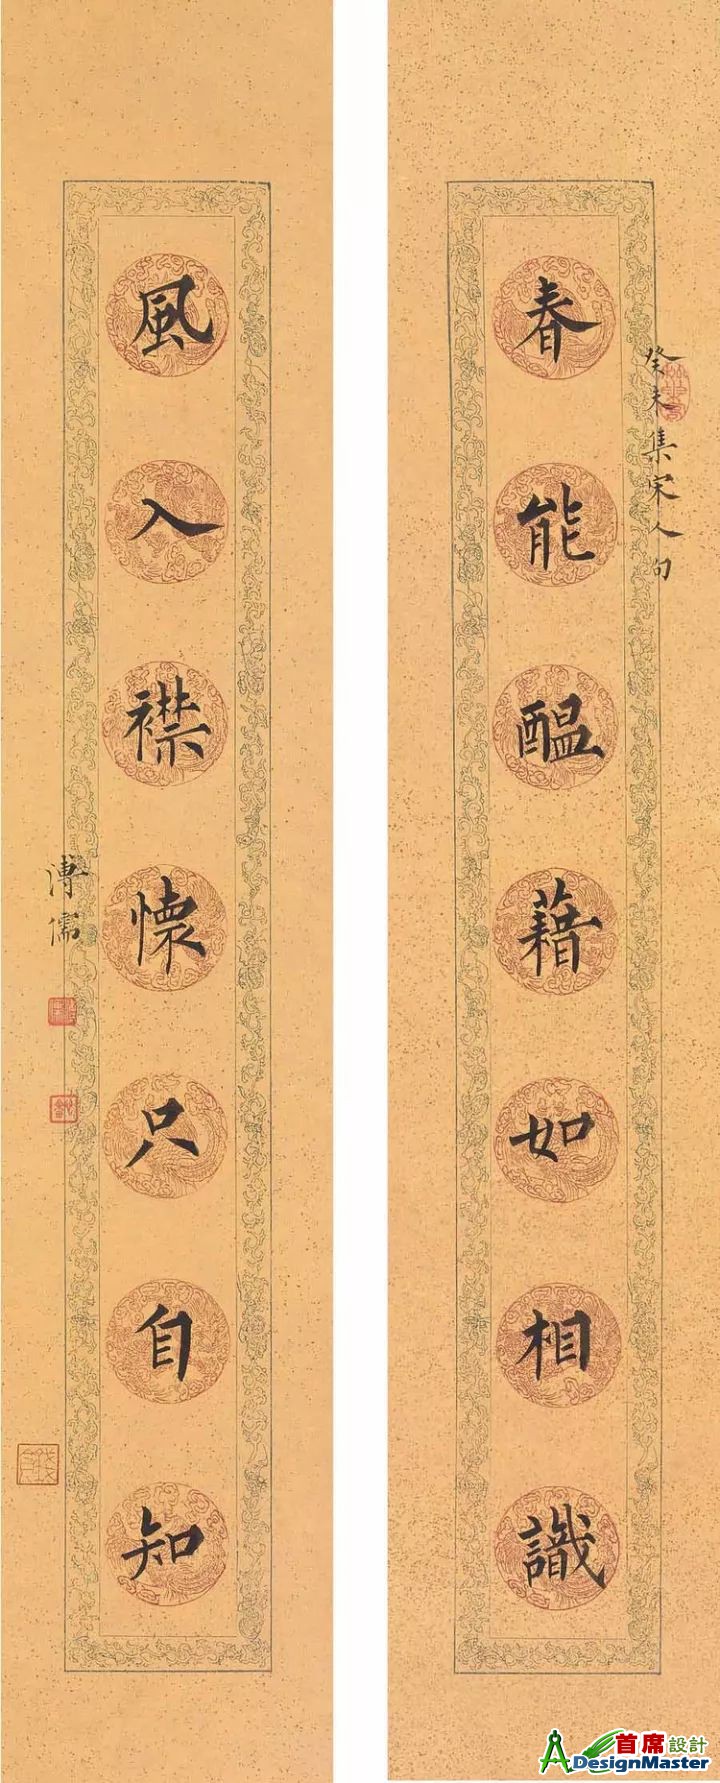 癸未集宋人句
春能醖藉如相識
風入襟懷只自知
溥儒
首席設計
ADesignMaster